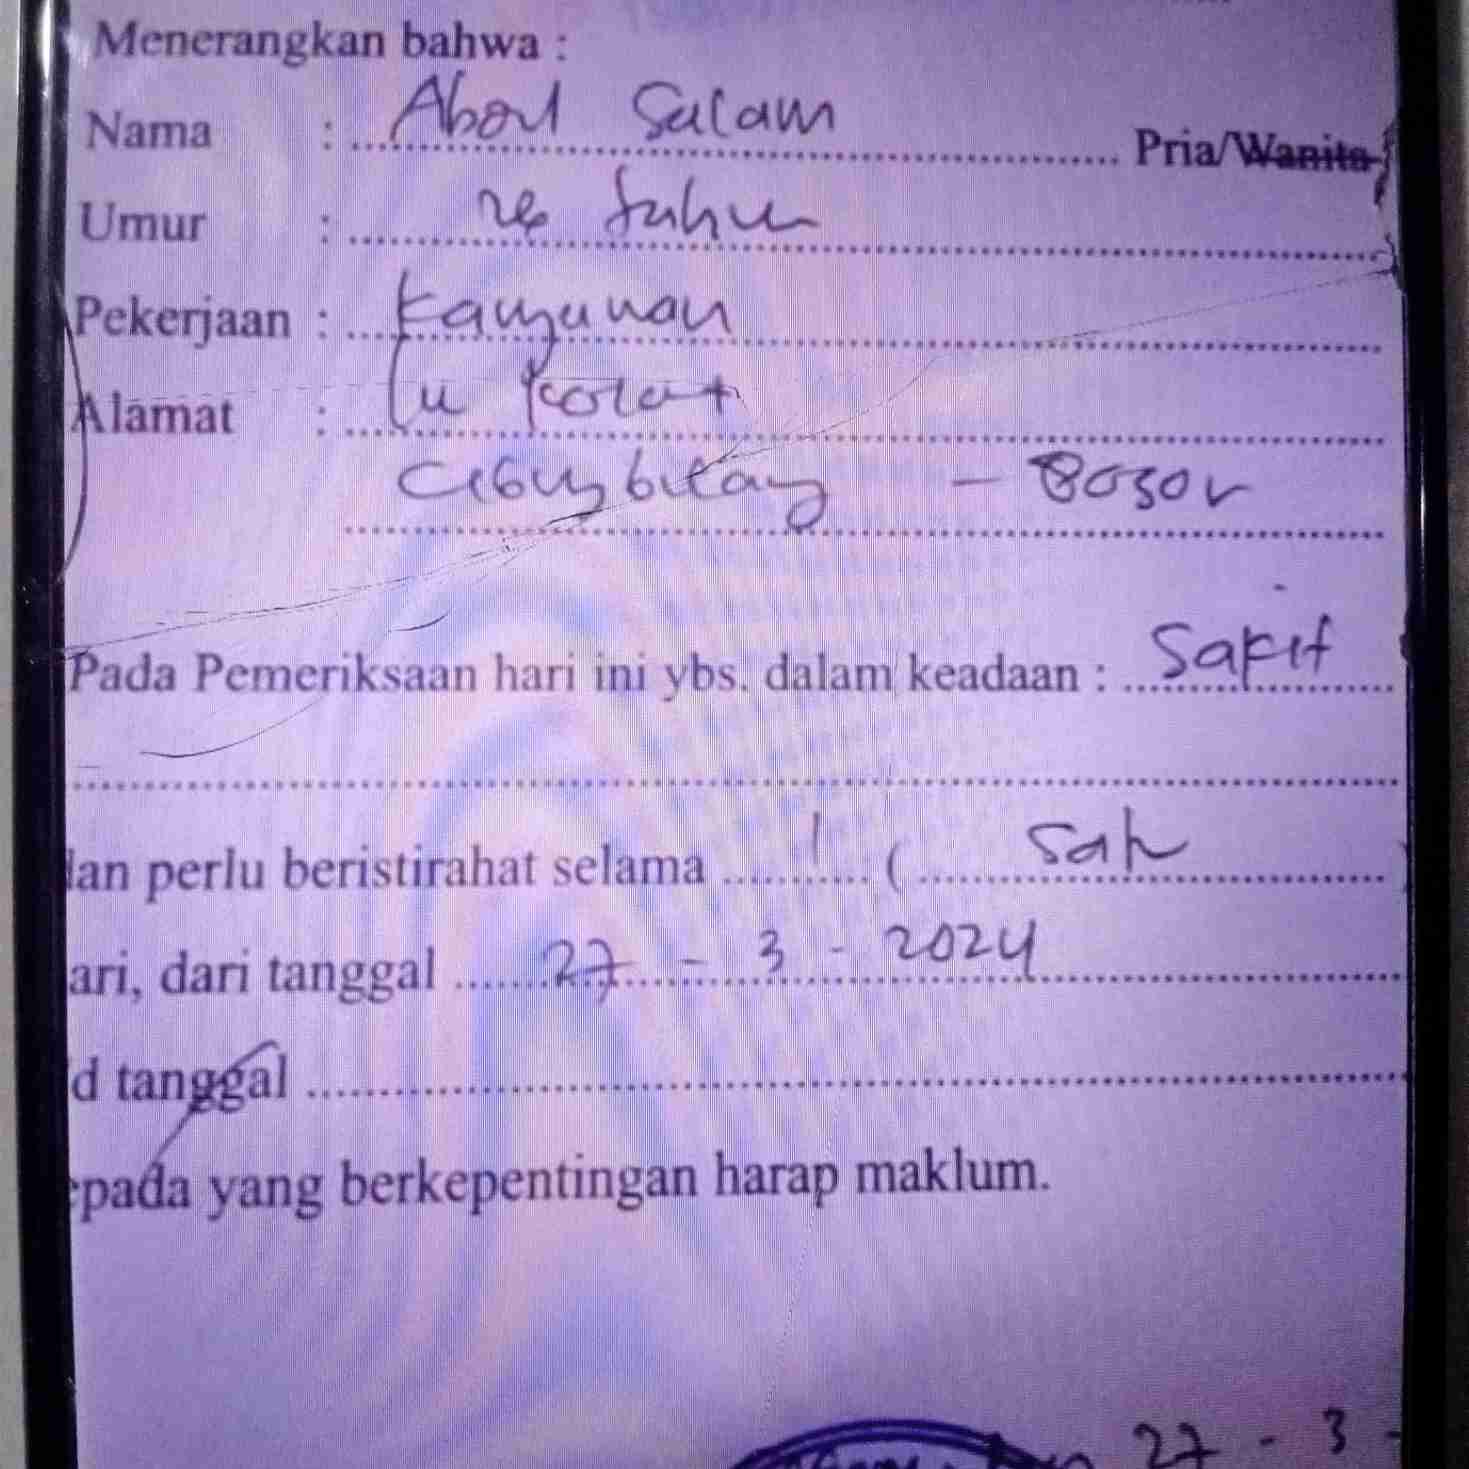 Menerangkan bahwa :
Nama : Abdul Salam Pria/Wanita
Umur : tahun
Pekerjaan : Karyawan
Alamat :
Cibungbulang - Bogor
Pada Pemeriksaan hari ini ybs. dalam keadaan : Sakit
dan perlu beristirahat selama 1 ( satu )
ari, dari tanggal 27 - 3 - 2024
d tanggal
epada yang berkepentingan harap maklum.
27 - 3 -